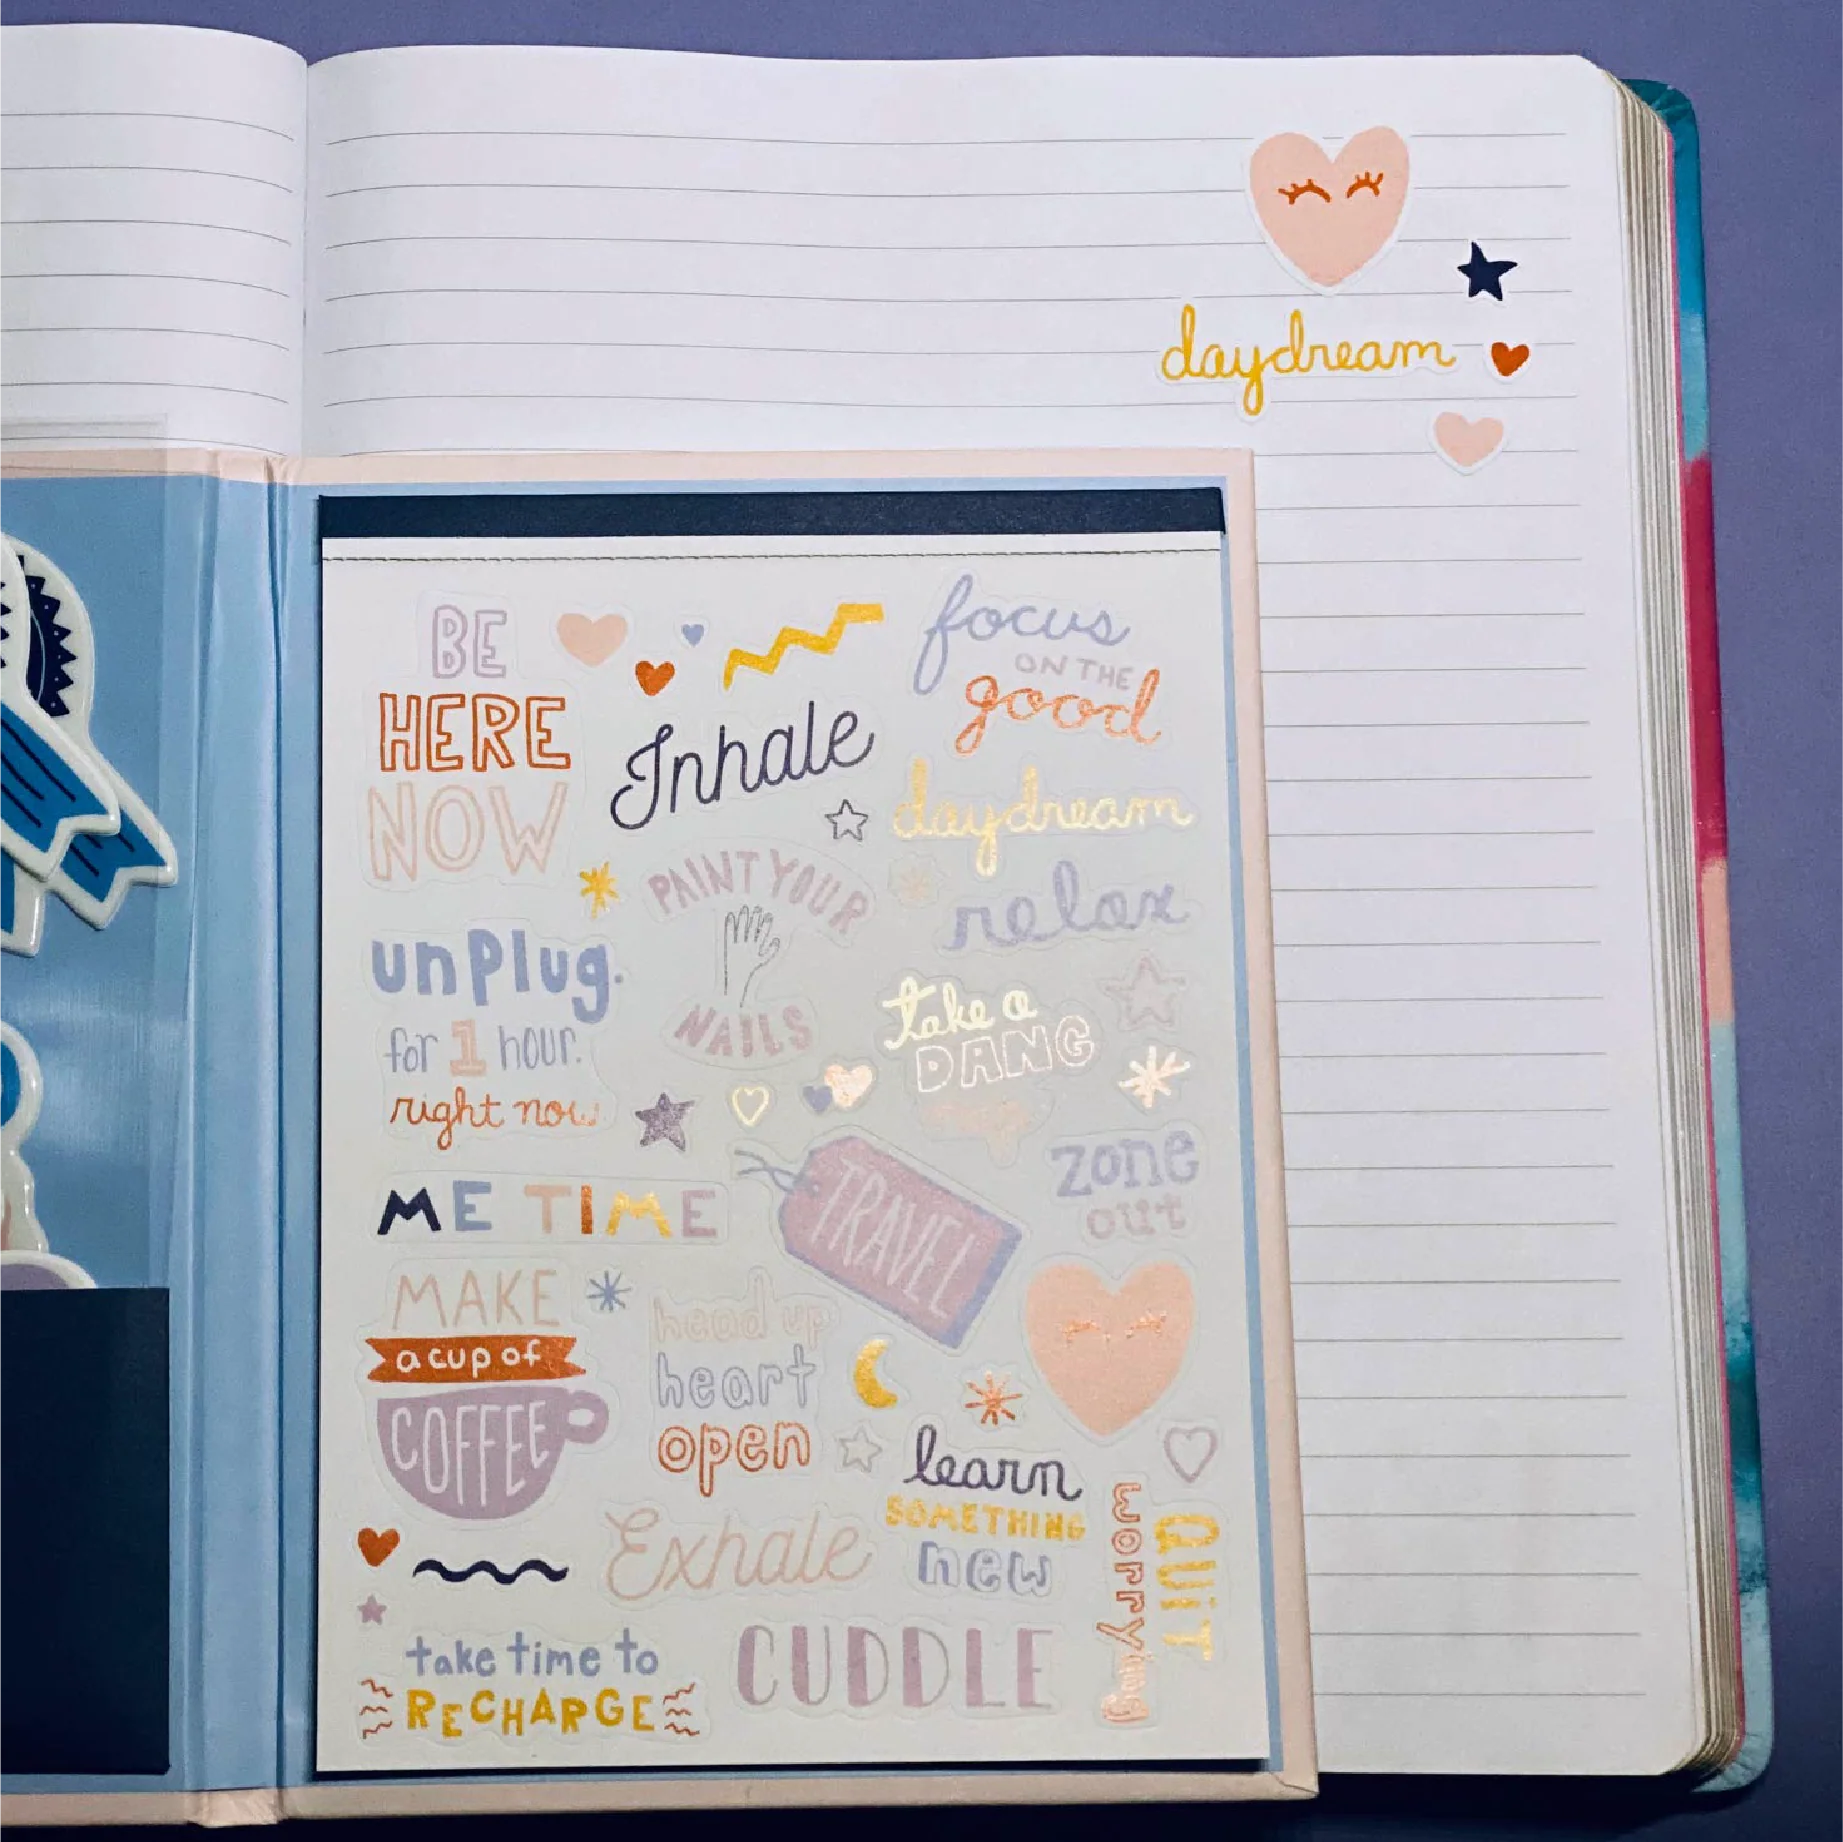 daydream
BE
HERE
NOW
Inhale
focus
ON THE
good
daydream
PAINT YOUR
NAILS
relax
unPlug.
for 1 hour.
right now
take a
DANG
ME TIME
TRAVEL
zone
out
MAKE
a cup of
COFFEE
head up
heart
open
learn
SOMETHING
new
QUIT
worrying
Exhale
take time to
RECHARGE
CUDDLE